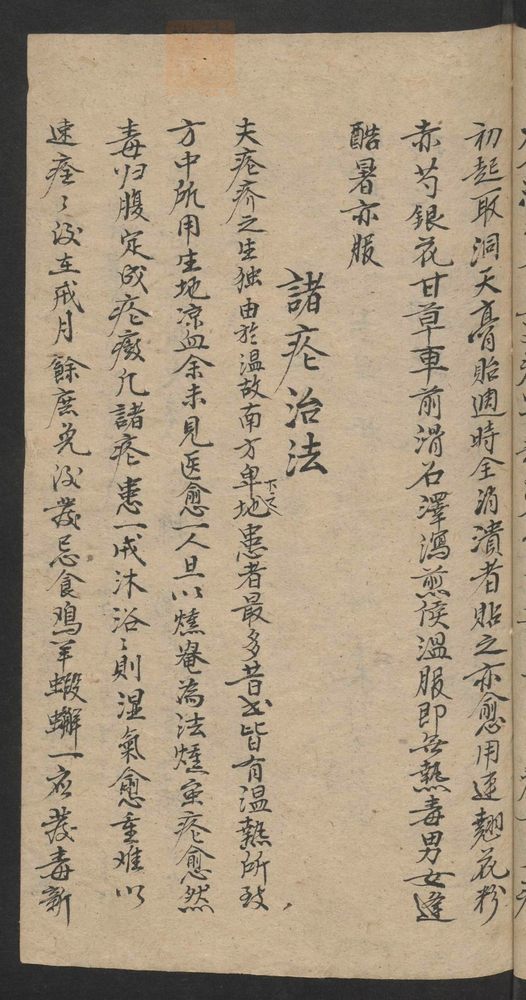 初起取洞天膏貼週時全消潰者貼之亦愈用連翹花粉
赤芍銀花甘草車前滑石澤瀉煎候溫服即無熱毒男女逢
酷暑亦服
諸疮治法
夫疮疥之生独由於温故南方卑地患者最多昔皆有温熱所致
方中所用生地凉血余未見医愈一人且以燻為法燻虫疮愈然
毒归腹定成疮癥凡諸疮患一戒沐浴〻則湿氣愈重难以
速痊〻後在戒月餘庶免後發忌食鳮羊蝦蠏一应發毒新